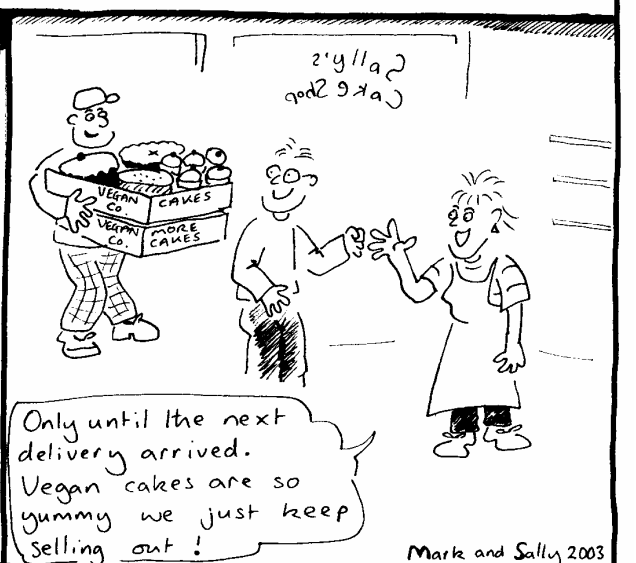 Sally's
Cake Shop
VEGAN
Co.
CAKES
VEGAN
Co.
MORE
CAKES
Only until the next
delivery arrived.
Vegan cakes are so
yummy we just keep
selling out!
Mark and Sally 2003